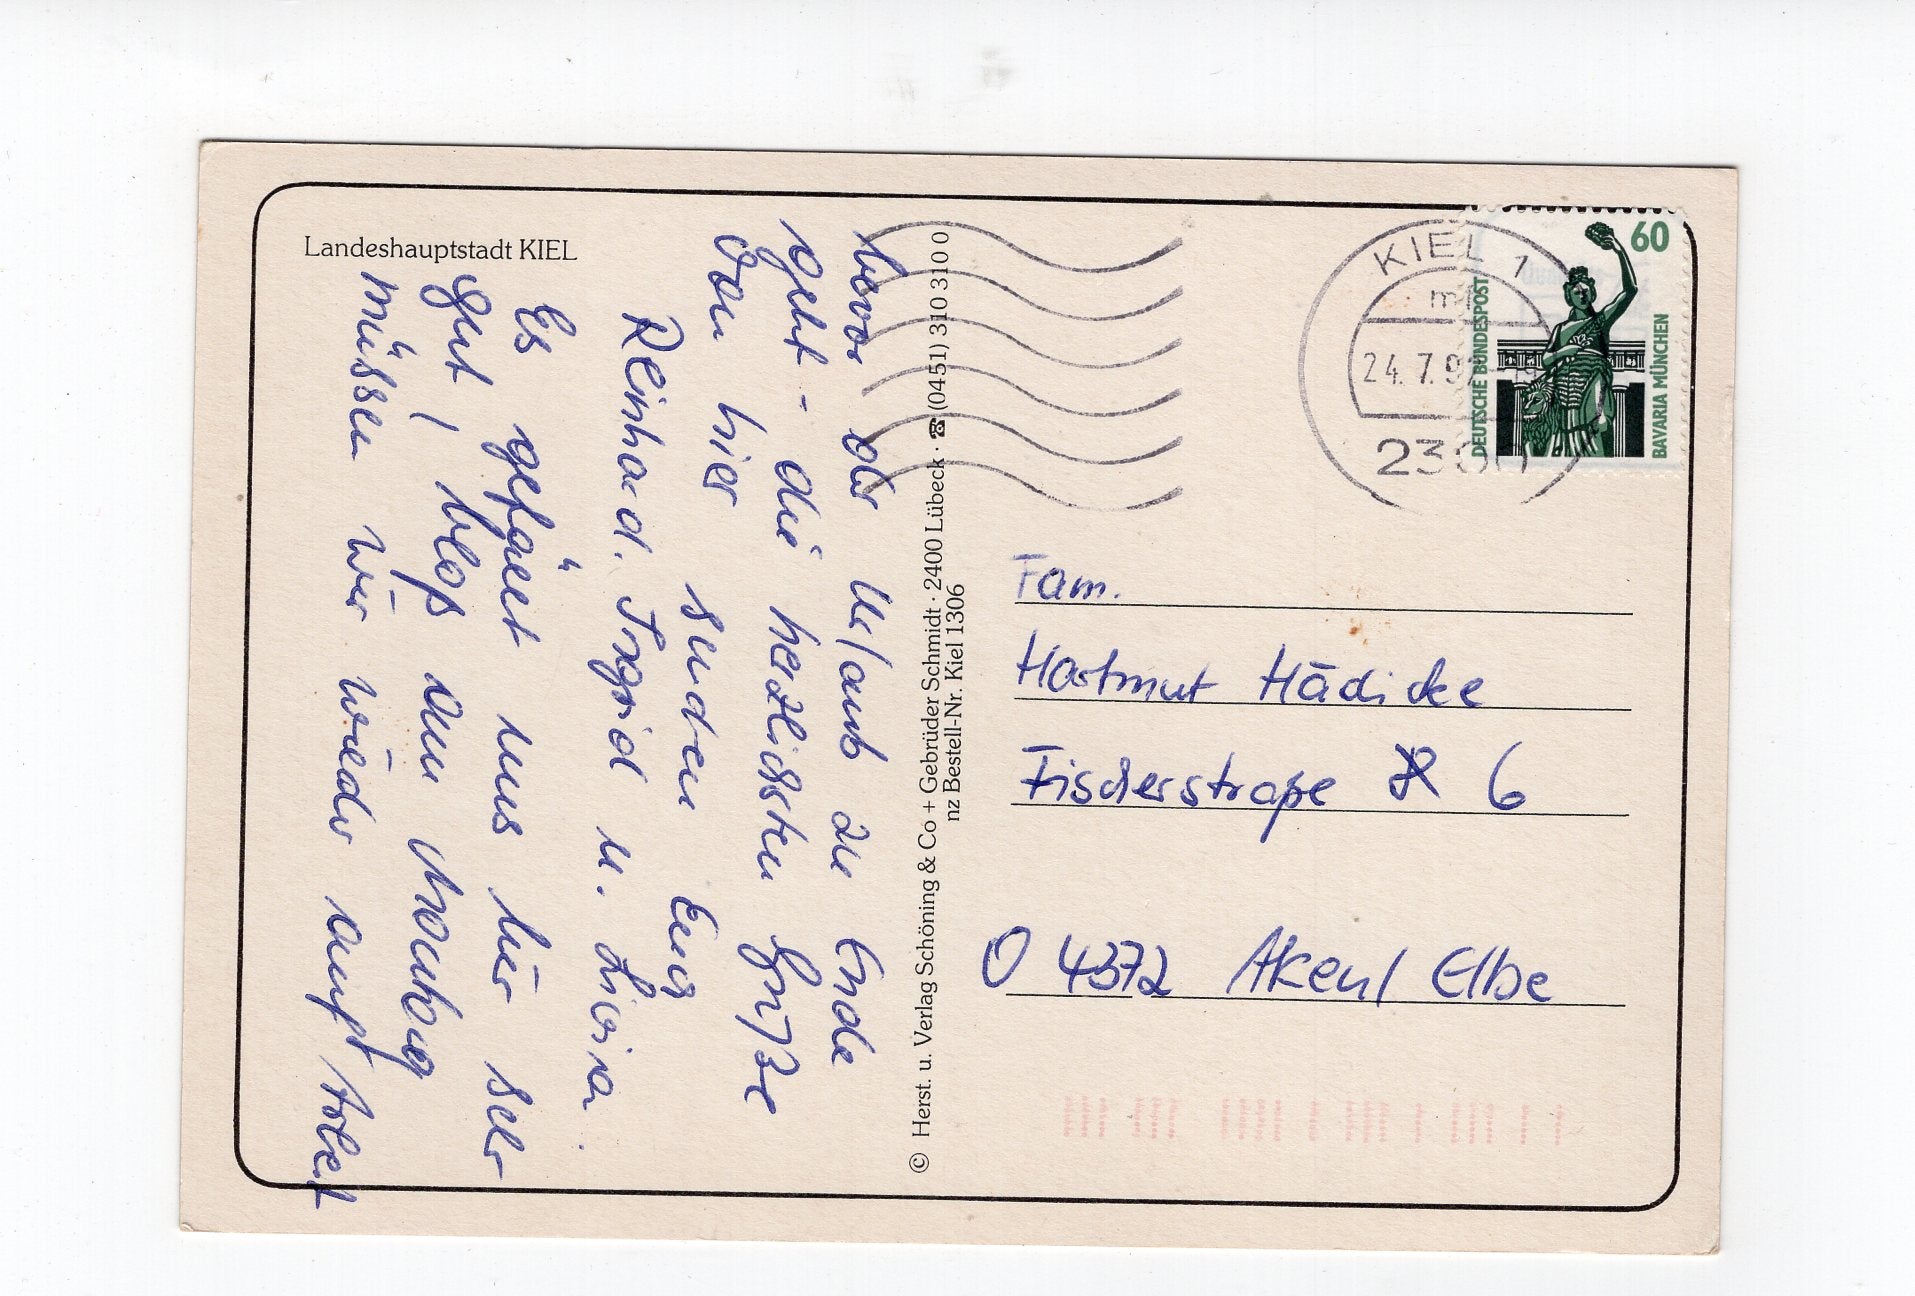 Landeshauptstadt KIEL
bevor der Urlaub zu Ende
geht - die herzlichsten Grüße
von hier senden Euch
Reinhard, Ingrid u. Livia.
Es gefällt uns hier sehr
gut, bloß am Montag
müssen wir wieder auf Arbeit
© Herst. u. Verlag Schöning & Co + Gebrüder Schmidt · 2400 Lübeck · ☎ (0451) 310 310 0
nz Bestell-Nr. Kiel 1306
KIEL 1
24.7.92-19
2300
60
DEUTSCHE BUNDESPOST
BAVARIA MÜNCHEN
Fam.
Hartmut Hädicke
Fischerstraße 6
O 4372 Aken/ Elbe